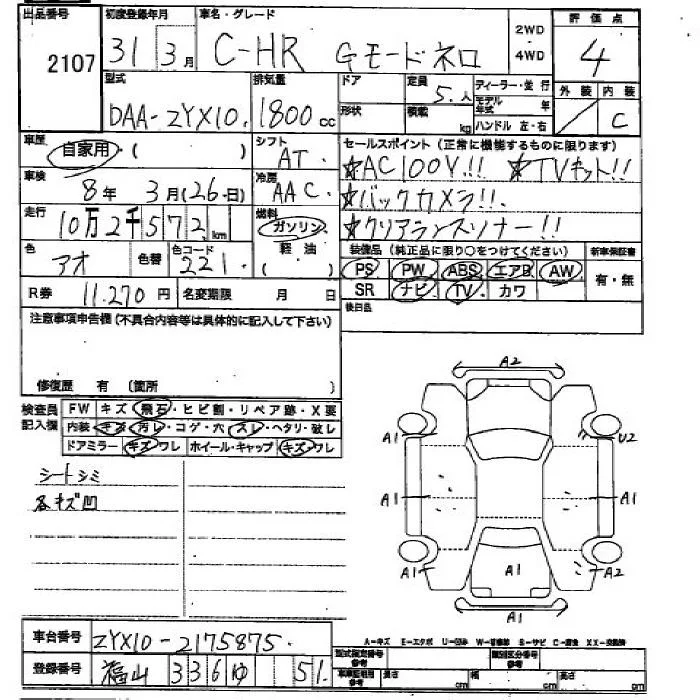 出品番号 初度登録年月 車名・グレード 2WD 4WD 評価点
2107 31 3月 C-HR Gモードネロ 4
型式 排気量 ドア 定員 ディーラー・並行 外装 内装
DAA-ZYX10. 1800cc 形状 5.人 積載 kg モデル年式 年 C
ハンドル 左・右
車歴 自家用・( ) シフト AT. セールスポイント(正常に機能するものに限ります)
☆AC100V!! ☆TVキット!!
車検 8年 3月(26・日) 冷房 AAC. ☆バックカメラ!!.
走行 10万2千572km 燃料 ガソリン ☆クリアランスソナー!!
軽油 ( )
色 アオ 色替 色コード 221. 装備品(純正品に限り○をつけてください) 新車保証書
PS PW ABS エアB AW 有・無
SR ナビ TV カワ
R券 11.270円 名変期限 月 日 後日品
注意事項申告欄(不具合内容等は具体的に記入して下さい)
修復歴 有 (箇所 )
検査員記入欄 FW キズ・飛石・ヒビ割・リペア跡・X要
内装 キズ・汚レ・コゲ・穴・スレ・ヘタリ・破レ
ドアミラー キズワレ ホイール・キャップ キズワレ
シートシミ
各キズ凹
A2
A1 U2
A1 A1
A1 A1 A2
A1
A-キズ E-エクボ U-凹み W-補修跡 S-サビ C-腐食 XX-交換済
車台番号 ZYX10-2175875.
型式指定番号 参考 類別区分番号 参考
登録番号 福山 336 ゆ 51.
車庫証明用 参考 長さ cm 幅 cm 高さ cm